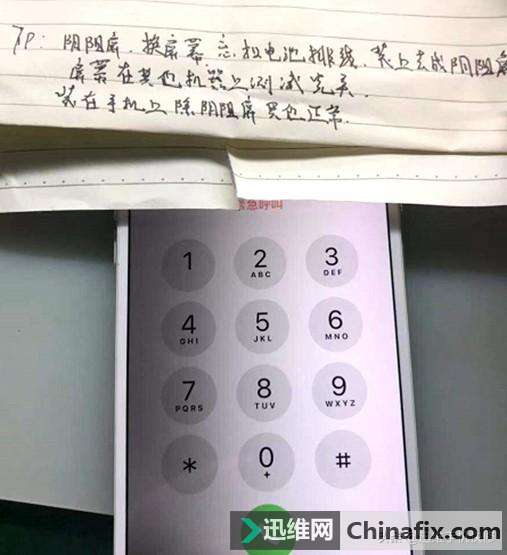 7P: 阴阳屏. 换屏幕 忘扣电池排线. 装上去成阴阳屏
屏幕在其他机器上测试完美.
装在手机上 除阴阳屏 其他正常.
紧急呼叫
1
2
3
ABC
DEF
4
5
6
GHI
JKL
MNO
7
8
9
PQRS
TUV
WXYZ
*
0
#
+
迅维网 Chinafix.com